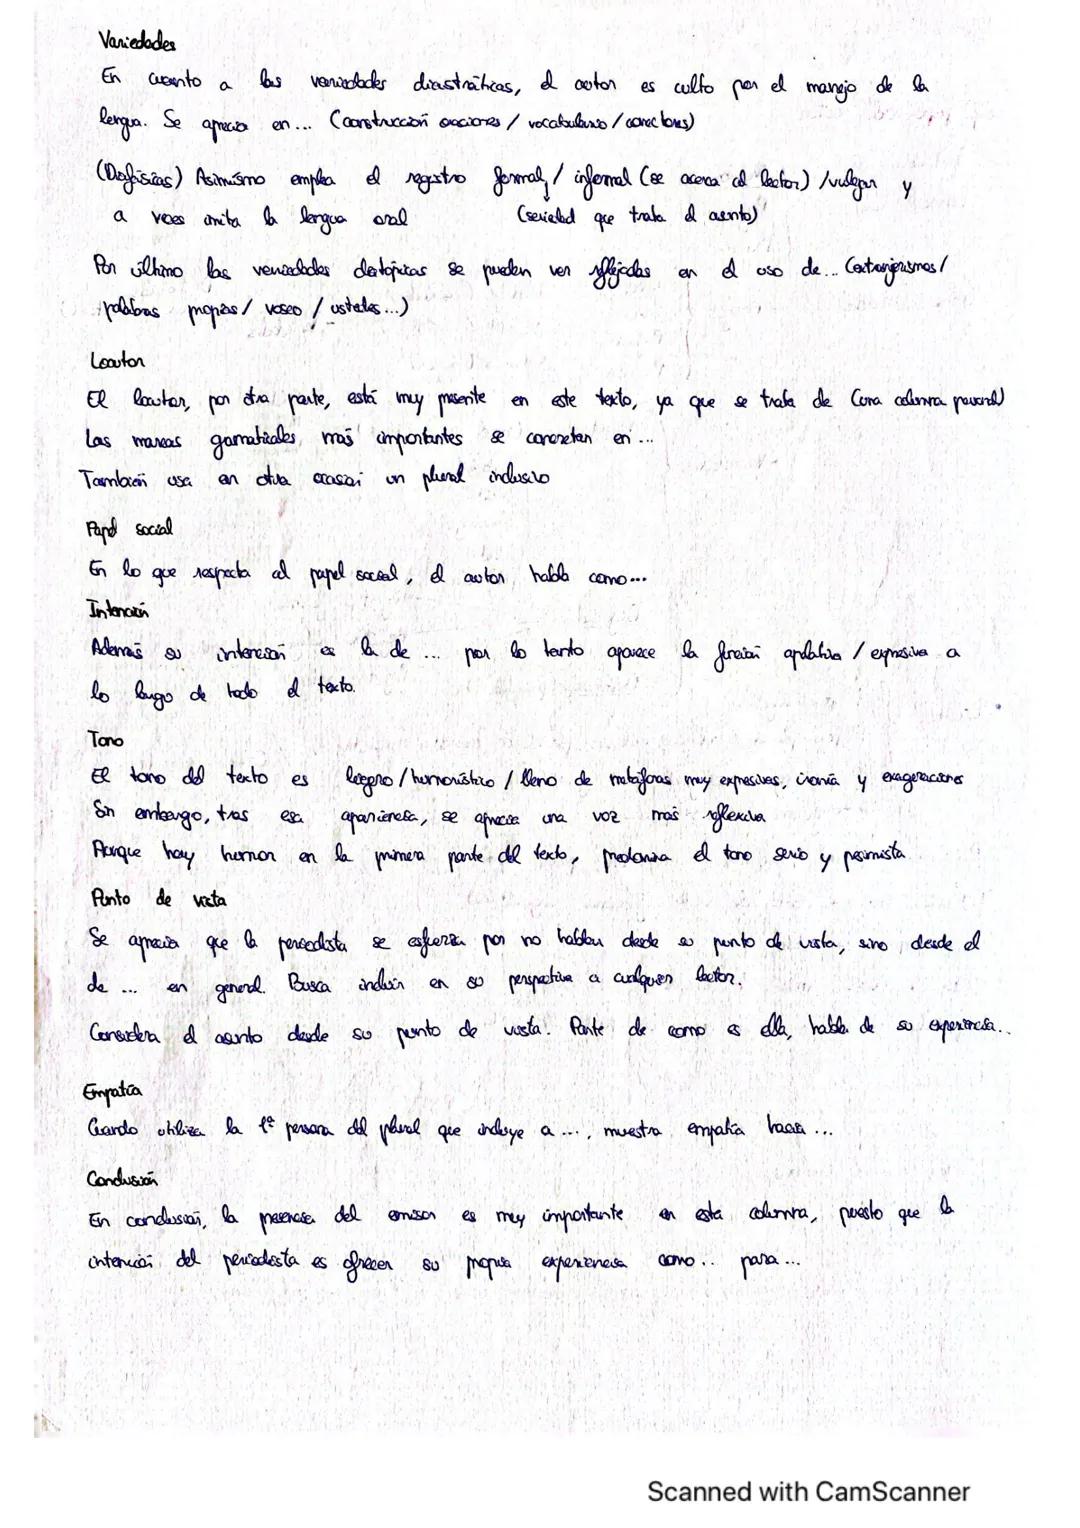 Variedades
En cuanto a las variedades diastráticas, el autor es culto por el manejo de la
lengua. Se aprecia en... (construcción oraciones / vocabulario / conectores)
(Diafásicas) Asimismo emplea el registro formal / informal (se acerca al lector) / vulgar y
a veces imita la lengua oral (seriedad que trata el asunto)
Por último las variedades diatópicas se pueden ver reflejadas en el uso de... (extranjerismos /
palabras propias / voseo / ustedes...)
Locutor
El locutor, por otra parte, está muy presente en este texto, ya que se trata de (una columna personal)
Las marcas gramaticales más importantes se concretan en...
También usa en otra ocasión un plural inclusivo
Papel social
En lo que respecta al papel social, el autor habla como...
Intención
Además su intención es la de ... por lo tanto aparece la función apelativa / expresiva a
lo largo de todo el texto.
Tono
El tono del texto es ligero / humorístico / lleno de metáforas muy expresivas, ironía y exageraciones
Sin embargo, tras esa apariencia, se aprecia una voz más reflexiva
Aunque hay humor en la primera parte del texto, predomina el tono serio y pesimista
Punto de vista
Se aprecia que la periodista se esfuerza por no hablar desde su punto de vista, sino desde el
de ... en general. Busca incluir en su perspectiva a cualquier lector.
Considera el asunto desde su punto de vista. Parte de como es ella, habla de su experiencia..
Empatía
Cuando utiliza la 1ª persona del plural que incluye a ..., muestra empatía hacia ...
Conclusión
En conclusión, la presencia del emisor es muy importante en esta columna, puesto que la
intención del periodista es ofrecer su propia experiencia como.. para...
Scanned with CamScanner